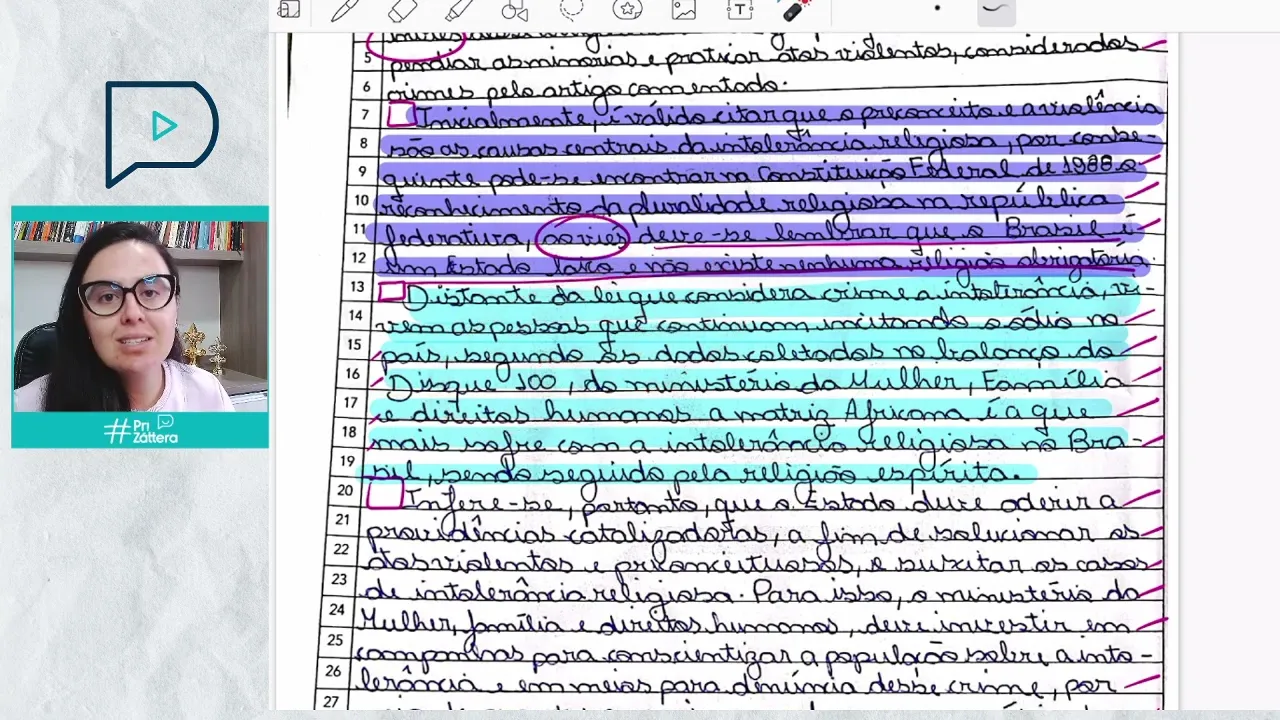 pendiar as minorias e praticar atos violentos, considerados
5
6
crimes pelo artigo comentado.
7
Inicialmente, é válido citar que o preconceito e a violência
8
são as causas centrais da intolerância religiosa, por conse-
9
quinte pode-se encontrar na Constituição Federal de 1988 o
10
reconhecimento da pluralidade religiosa na república
11
federativa, ao viés deve-se lembrar que o Brasil é
12
um Estado laico e não existe nenhuma religião obrigatória.
13
Distante da lei que considera crime a intolerância, vi-
14
vem as pessoas que continuam incitando o ódio no
15
país, segundo os dados coletados no balanço do
16
Disque 100, do ministério da Mulher, Família
17
e direitos humanos a matriz Africana é a que
18
mais sofre com a intolerância religiosa no Bra-
19
sil, sendo seguido pela religião espírita.
20
Infere-se, portanto, que o Estado deve aderir a
21
providências catalizadoras, a fim de solucionar os
22
atos violentos e preconceituosos, e suscitar os casos
23
de intolerância religiosa. Para isso, o ministério da
24
Mulher, família e direitos humanos, deve investir em
25
campanhas para conscientizar a população sobre a into-
26
lerância e em meios para denúncia desse crime, por
27
#Pri
Záttera